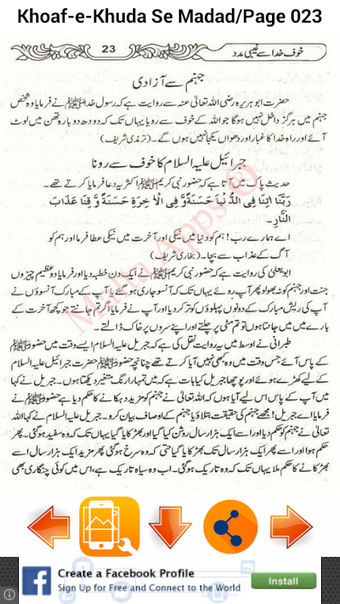 Khoaf-e-Khuda Se Madad/Page 023
خوف خدا سے غیبی مدد
23
جہنم سے آزادی
حضرت ابو ہریرہ رضی اللہ تعالیٰ عنہ سے روایت ہے کہ رسول خدا ﷺ نے فرمایا وہ شخص
جہنم میں ہرگز داخل نہیں ہوگا جو اللہ کے خوف سے رویا یہاں تک کہ دودھ دوبارہ تھن میں لوٹ
آئے اور راہ خدا کا غبار اور دھواں یکجا نہیں ہوں گے۔ (ترمذی شریف)
جبرائیل علیہ السلام کا خوف سے رونا
حدیث پاک میں آتا ہے کہ حضور نبی کریم ﷺ اکثر یہ دعا فرمایا کرتے تھے۔
رَبَّنَا اٰتِنَا فِی الدُّنْیَا حَسَنَةً وَّ فِی الْاٰخِرَةِ حَسَنَةً وَّ قِنَا عَذَابَ
النَّارِ۔
اے ہمارے رب! ہم کو دنیا میں نیکی اور آخرت میں نیکی عطا فرما اور ہم کو
آگ کے عذاب سے بچا۔ (بخاری شریف)
ابو یعلیٰ کی روایت ہے کہ حضور نبی کریم ﷺ نے ایک دن خطبہ دیا اور فرمایا دو عظیم چیزوں
جنت اور جہنم کو نہ بھولو پھر آپ روئے یہاں تک کہ آنسو جاری ہو گئے یا آپ کے مبارک آنسوؤں نے
آپ کی ریش مبارک کے دونوں پہلوؤں کو تر کر دیا اور آپ نے فرمایا اگر تم جانتے جو کچھ آخرت کے
بارے میں میں جانتا ہوں تو تم مٹی پر چلتے اور اپنے سروں پر خاک ڈالتے۔
طبرانی نے اوسط میں یہ روایت نقل کی ہے کہ جبریل علیہ السلام ایسے وقت میں حضور ﷺ
کے پاس آئے جس وقت میں وہ کبھی نہیں آیا کرتے تھے چنانچہ حضور ﷺ حضرت جبرائیل علیہ السلام
کے لیے کھڑے ہوئے اور پوچھا جبریل کیا بات ہے کہ میں تمہارا رنگ متغیر دیکھتا ہوں۔ جبریل نے کہا
میں آپ کے پاس اس لیے آیا ہوں کہ اللہ تعالیٰ نے جہنم کو مزید دہکانے کا حکم دیا ہے حضور ﷺ نے
فرمایا اے جبریل! مجھے جہنم کی حقیقت بتلاؤ یا جہنم کے اوصاف بیان کرو۔ جبریل علیہ السلام نے کہا اللہ
تعالیٰ نے جہنم کو حکم دیا اور اسے ایک ہزار سال روشن کیا گیا اور بھڑکایا گیا یہاں تک کہ وہ سفید ہو گئی۔ پھر
حکم ہوا اور اسے پھر ایک ہزار سال تک بھڑکایا گیا حتی کہ وہ سرخ ہو گئی پھر مزید ایک ہزار سال اسے
بھڑکانے کا حکم ملا یہاں تک کہ وہ تاریک ہو گئی۔ اب وہ سیاہ تاریک ہے، اس میں کوئی چنگاری بھی
Create a Facebook Profile
Sign Up for Free and Connect to the World
Install